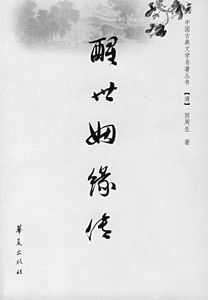 中国古典文学名著丛书
【清】西周生 著
醒世姻缘传
华夏出版社